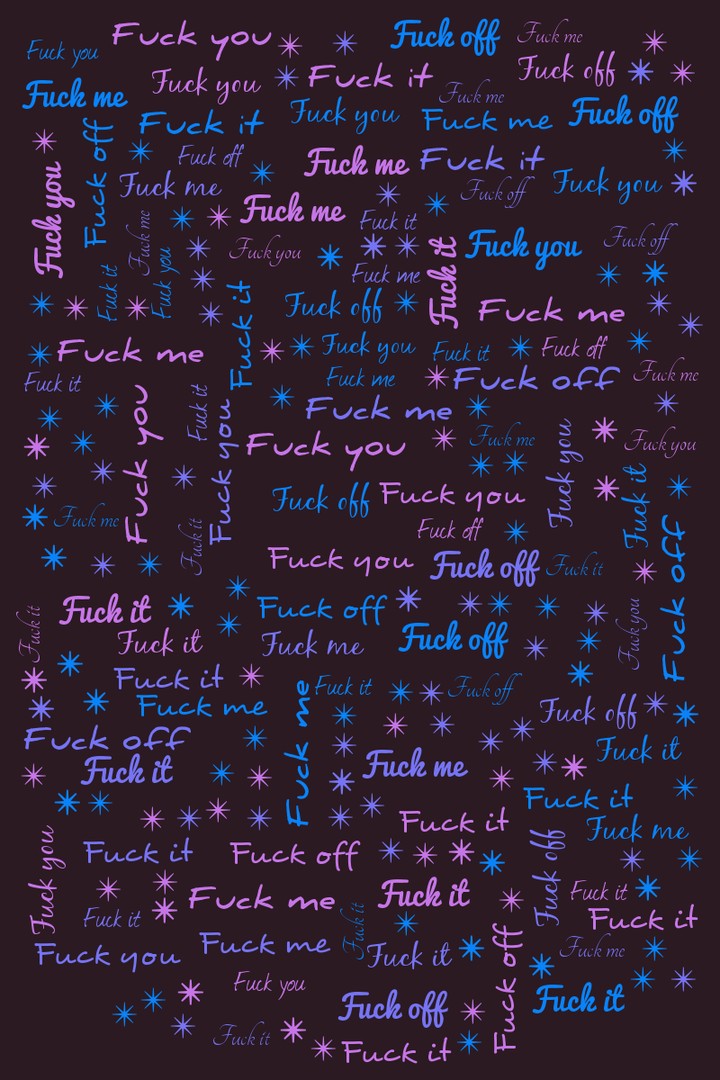 Fuck you
Fuck off
Fuck me
Fuck you
Fuck off
Fuck you
Fuck it
Fuck me
Fuck me
Fuck you
Fuck off
Fuck it
Fuck me
Fuck off
Fuck off
Fuck me
Fuck it
Fuck me
Fuck off
Fuck you
Fuck you
Fuck me
Fuck it
Fuck me
Fuck you
Fuck you
Fuck off
Fuck it
Fuck you
Fuck me
Fuck it
Fuck off
Fuck it
Fuck me
Fuck me
Fuck you
Fuck it
Fuck off
Fuck it
Fuck me
Fuck off
Fuck me
Fuck you
Fuck it
Fuck me
Fuck you
Fuck you
Fuck me
Fuck you
Fuck you
Fuck it
Fuck off
Fuck you
Fuck me
Fuck it
Fuck off
Fuck off
Fuck you
Fuck off
Fuck it
Fuck it
Fuck it
Fuck off
Fuck you
Fuck it
Fuck me
Fuck off
Fuck it
Fuck it
Fuck off
Fuck me
Fuck me
Fuck off
Fuck off
Fuck it
Fuck me
Fuck it
Fuck it
Fuck it
Fuck me
Fuck you
Fuck it
Fuck off
Fuck off
Fuck me
Fuck it
Fuck it
Fuck it
Fuck it
Fuck it
Fuck you
Fuck me
Fuck it
Fuck off
Fuck me
Fuck you
Fuck off
Fuck it
Fuck it
Fuck it